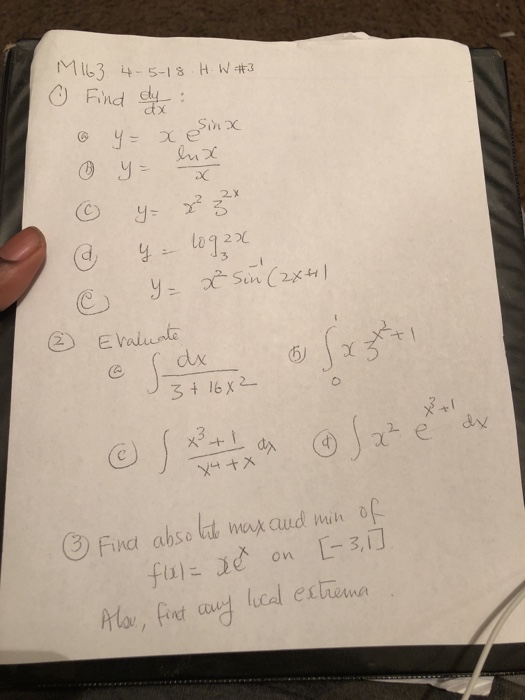 M163 4-5-18 H.W #3
① Find dy/dx :
ⓐ y = x e^sinx
ⓑ y = lnx/x
ⓒ y = x² 3^2x
ⓓ y = log₃ 2x
ⓔ y = x² sin⁻¹(2x+1
② Evaluate
ⓐ ∫ dx/(3 + 16x²) ⓑ ∫₀¹ x 3^(x²+1)
ⓒ ∫ (x³+1)/(x⁴+x) dx ⓓ ∫ x² e^(x³+1) dx
③ Find absolute max and min of
f(x) = xe^x on [-3,1]
Also, find any local extrema.